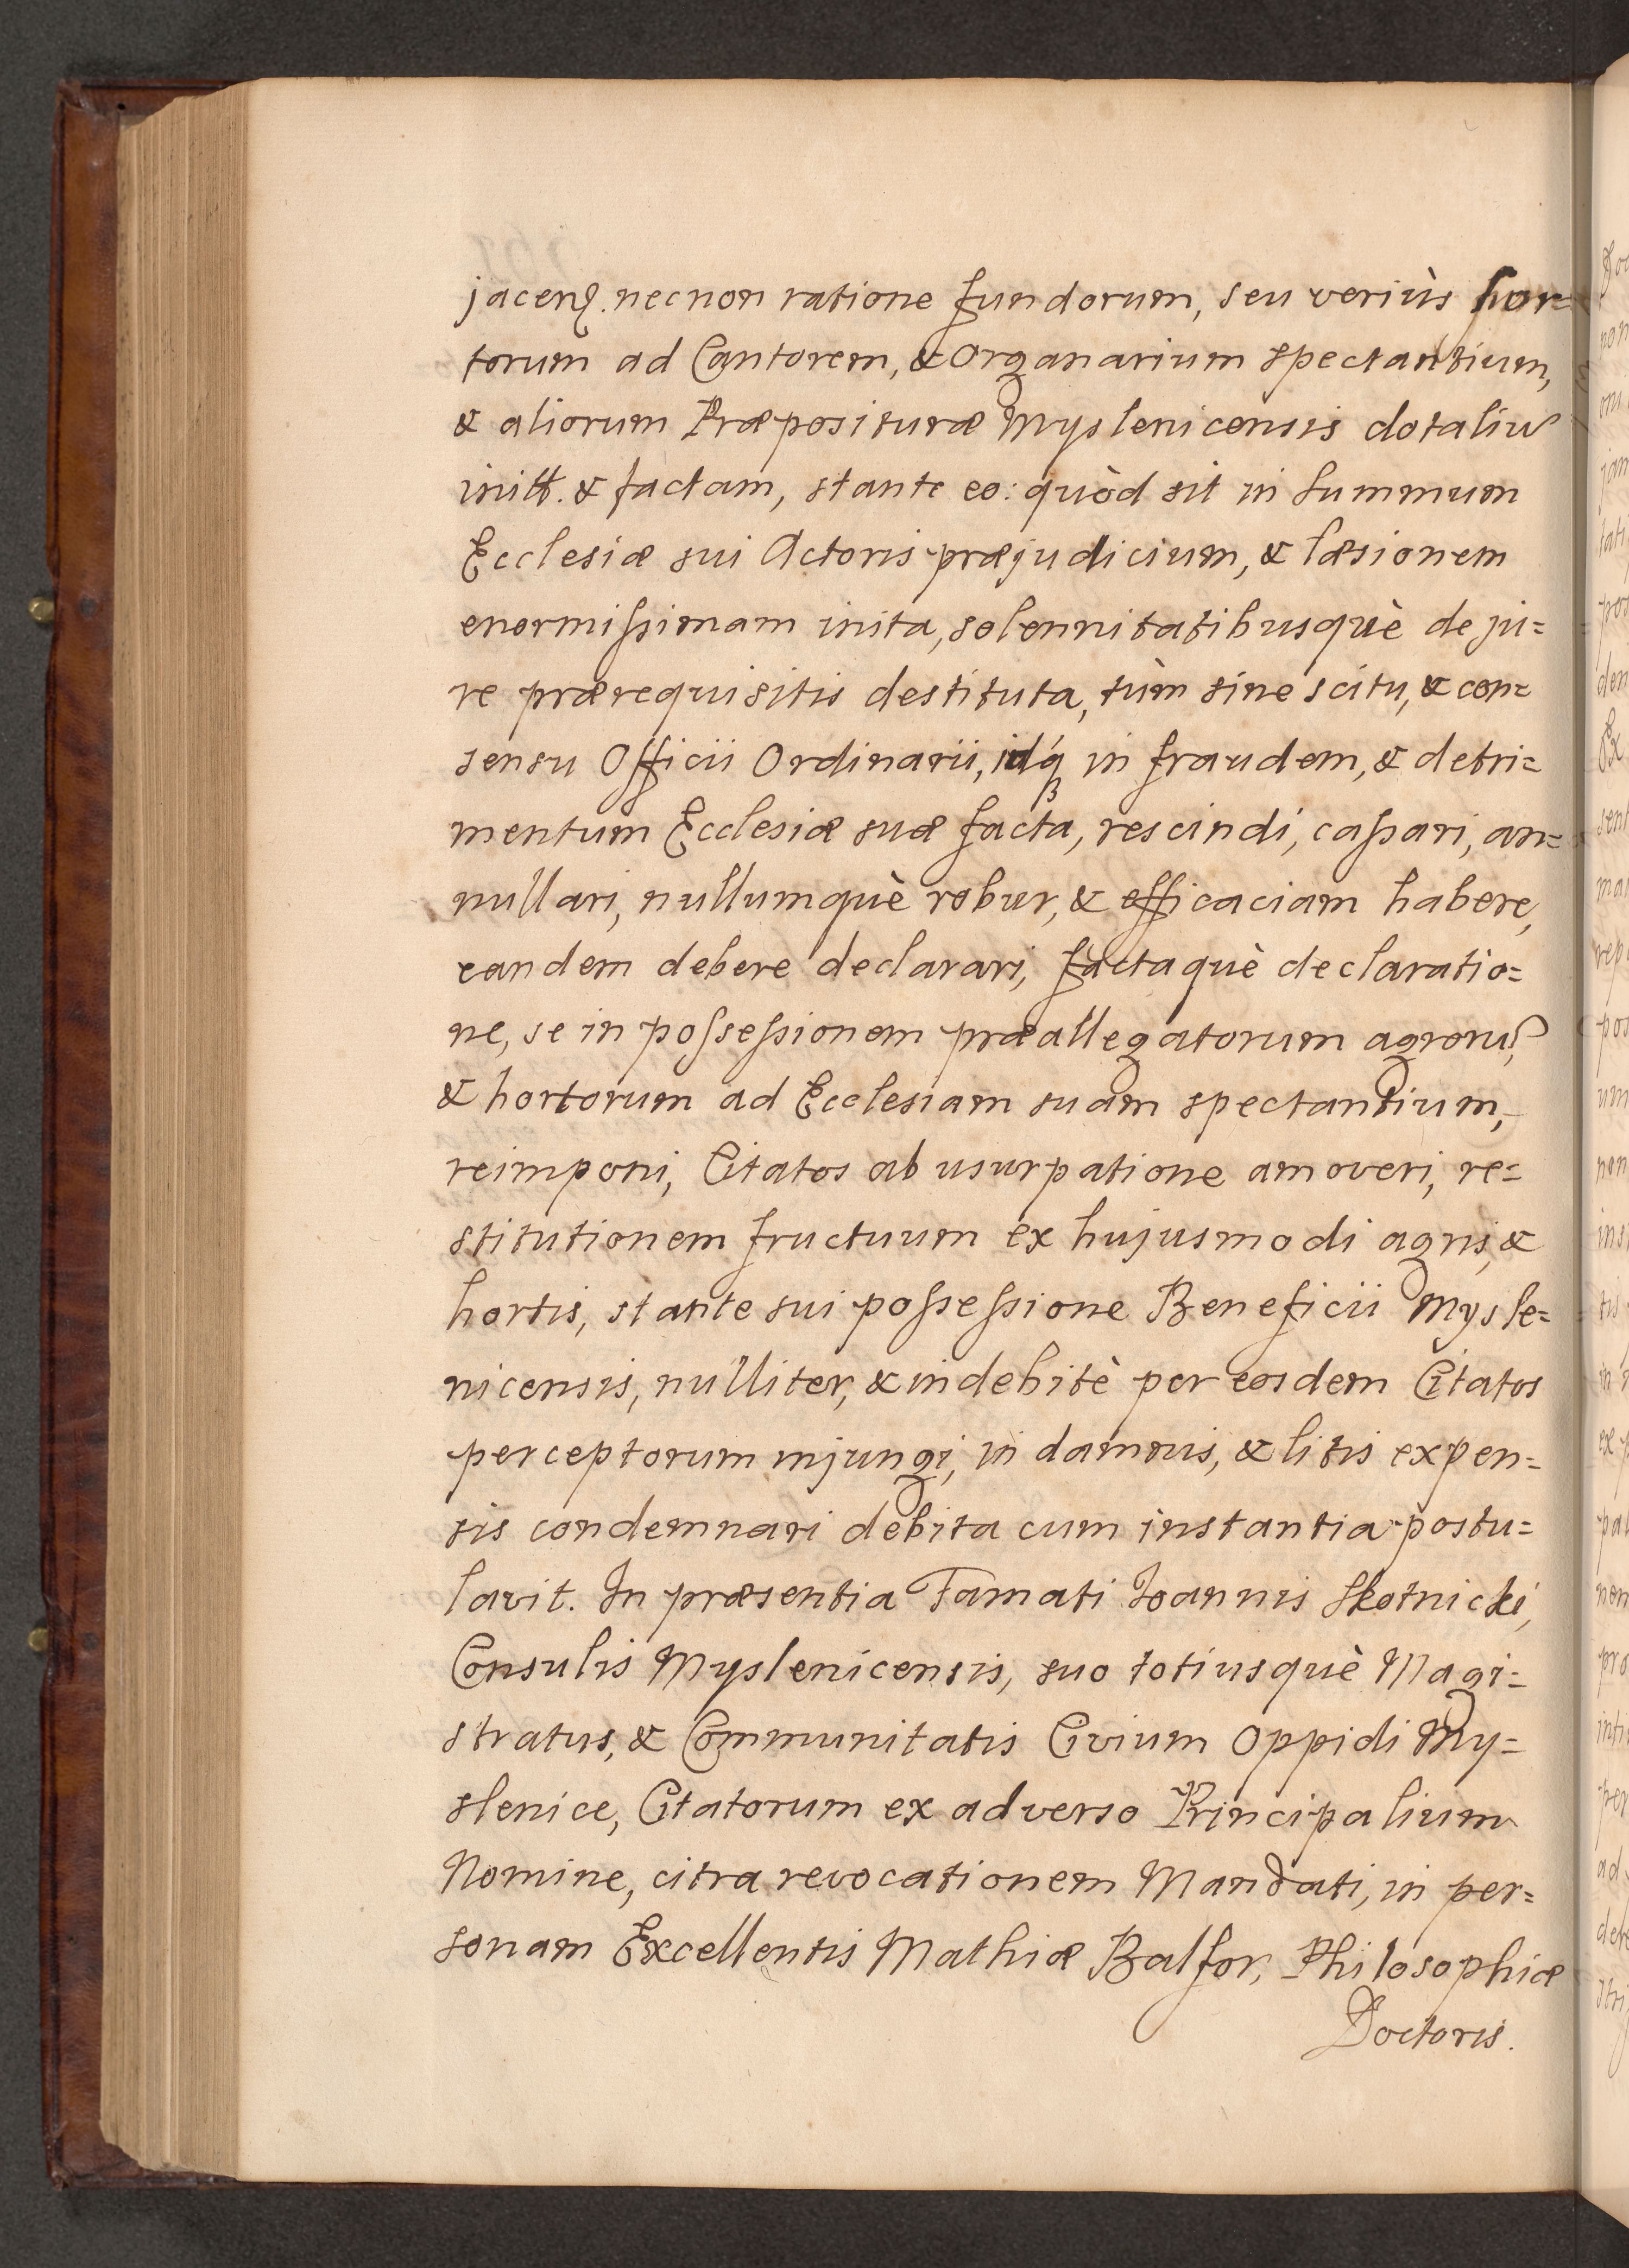 jacen. necnon ratione fundorum, seu veriùs hor=
torum ad Cantorem, & Organarium spectantium,
& aliorum Præposituræ Myslenicensis dotaliu
initt. & factam, stante eo: quòd sit in summum
Ecclesiæ sui Actoris præjudicium, & læsionem
enormissimam inita, solennitatibusquè de ju=
re prærequisitis destituta, tùm sine scitu, & con=
sensu Officii Ordinarii, idq́ in fraudem, & detri=
mentum Ecclesiæ suæ facta, rescindi, cassari, an=
nullari, nullumquè robur, & efficaciam habere,
eandem debere declarari, factaquè declaratio=
ne, se in possessionem præallegatorum agroru,
& hortorum ad Ecclesiam suam spectantium,
reimponi, Citatos ab usurpatione amoveri, re=
stitutionem fructuum ex hujusmodi agris, &
hortis, stante sui possessione Beneficii Mysle=
nicensis, nulliter, & indebitè per eosdem Citatos
perceptorum injungi, in damnis, & litis expen=
sis condemnari debita cum instantia postu=
lavit. In præsentia Famati Joannis Skotnicki,
Consulis Myslenicensis, suo totiusquè Magi=
stratus, & Communitatis Civium Oppidi My=
slenice, Citatorum ex adverso Principalium
Nomine, citra revocationem Mandati, in per=
sonam Excellentis Mathiæ Balfor, Philosophiæ
Doctoris.